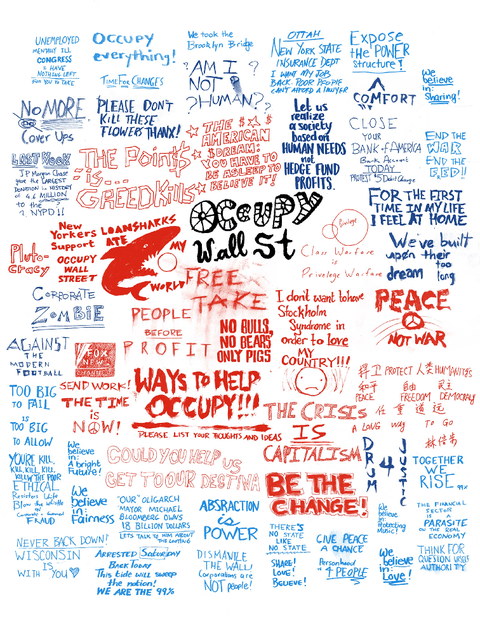 UNEMPLOYED
MENTALLY ILL
CONGRESS
& HAVE
NOTHING LEFT
OCCUPY
everything!
TIME FOR CHANGES
We took the
Brooklyn Bridge
"AM I
NOT
?HUMAN??
OTTAH
NEW YORK STATE
INSURANCE DEPT
I WANT MY JOB
BACK. POOR PEOPLE
CAN'T AFFORD A LAWYER
Expose
the POWER
structure!
COMFORT
We
believe
in:
Sharing!
NO MORE
Cover Ups
PLEASE DON'T
KILL THESE
FLOWERS THANX!
★ THE $★$
★ AMERICAN
★ DREAM:
YOU HAVE TO
BE ASLEEP TO
★ BELIEVE IT!
Let us
realize
a society
based on
HUMAN NEEDS
not
HEDGE FUND
PROFITS.
CLOSE
YOUR
BANK of AMERICA
Bank Account
TODAY
PROTEST $5 Debit Charge
END THE
WAR
END THE
FED!!
LAST WEEK
JP Morgan Chase
gave the LARGEST
DONATION in HISTORY
of 4.6 MILLION
to the
NYPD!!
THE Point$
is...
GREED Kills
OCCUPY
Wall St
FOR THE FIRST
TIME IN MY LIFE
I FEEL AT HOME
Pluto-
cracy
New
Yorkers
Support
OCCUPY
WALL
STREET
LOANSHARKS
ATE
MY
WORLD
Class Warfare
is
Privelege Warfare
We've built
upon their
dream too
long
CORPORATE
ZOMBIE
FREE
TAKE
PEOPLE
BEFORE
PROFIT
NO BULLS,
NO BEARS
ONLY PIGS
I don't want to have
Stockholm
Syndrome in
order to love
MY
COUNTRY!!!
PEACE
NOT WAR
AGAINST
THE
MODERN
FOOTBALL
FOX
NEWS
SEND WORK!
THE TIME
is
NOW!
WAYS TO HELP
OCCUPY!!!
PLEASE LIST YOUR THOUGHTS AND IDEAS
捍卫 PROTECT 人类 HUMANITIES
和平 自由 民主
PEACE FREEDOM DEMOCRACY
任重道远
A LONG WAY TO GO
TOO BIG
TO FAIL
IS
TOO BIG
TO ALLOW
THE CRISIS
IS
CAPITALISM
YOU'RE KILL,
KILL, KILL, KILL,
KILL THE POOR
ETHICAL
Resisters Unite
Blow the Whistle
on
Corporate + General
FRAUD
We
believe
in:
A bright
Future!
COULD YOU HELP US
GET TO OUR DESTINA
DRUM
4
JUSTICE
TOGETHER
WE
RISE
99%
We
believe
in:
Fairness
"OUR" OLIGARCH
MAYOR MICHAEL
BLOOMBERG OWNS
18 BILLION DOLLARS
LET'S TALK TO HIM ABOUT
ABSRACTION
is
POWER
BE THE
CHANGE!
We
believe
in:
Music!
THE FINANCIAL
SECTOR
PARASITE
ON THE REAL
ECONOMY
NEVER BACK DOWN!
WISCONSIN
IS
WITH YOU♥
ARRESTED Saturday
Back Today
This tide will sweep
the nation!
WE ARE THE 99%
DISMANTLE
THE WALL!
Corporations are
NOT people!
THERE'S
NO STATE
LIKE
NO STATE
SHARE!
LOVE!
BELIEVE!
GIVE PEACE
A CHANCE
Personhood
4 PEOPLE
We
believe
in:
Love!
THINK FOR
QUESTION
AUTHORITY